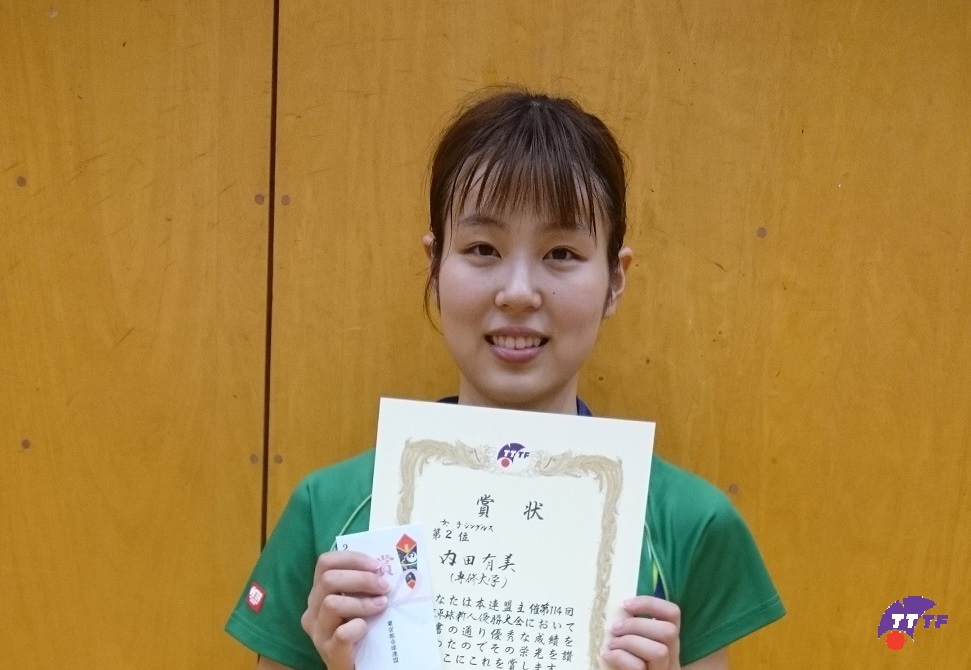 TTTF
賞状
女子シングルス
第2位
内田有美
(専修大学)
なたは本連盟主催第114回
卓球新人優勝大会において
書の通り優秀な成績を
ったのでその栄光を讃
こにこれを賞します
2
賞
東京都卓球連盟
TTTF